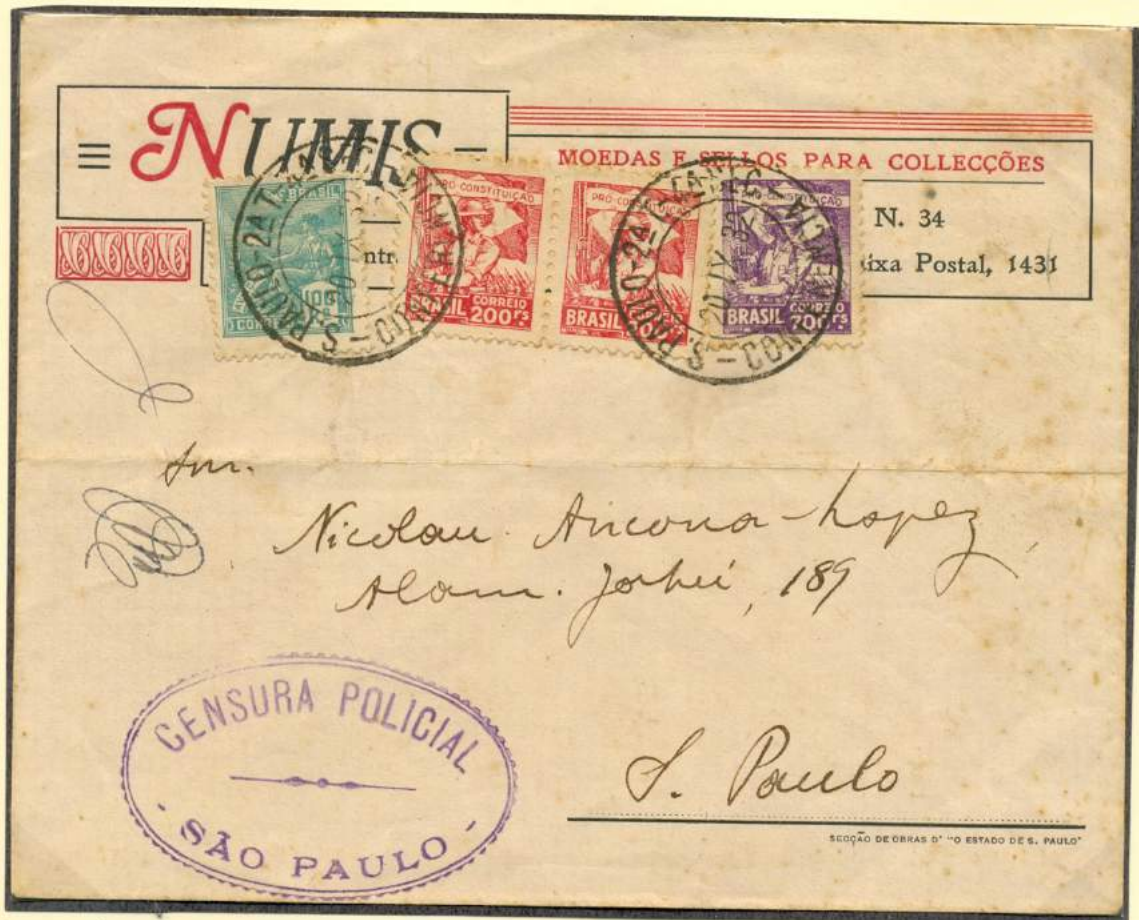 NUMIS
MOEDAS E SELLOS PARA COLLECÇÕES
N. 34
ntr.
ixa Postal, 1431
BRASIL
100
PRÓ-CONSTITUIÇÃO
BRASIL CORREIO
200 rs
PRÓ-CONSTITUIÇÃO
BRASIL
PRÓ-CONSTITUIÇÃO
BRASIL CORREIO
700 rs
S. PAULO-2A
S. PAULO-2A
20 IX 32
Snr.
Nicolau Ancona-Lopez
Alam. Jahú, 189
S. Paulo
CENSURA POLICIAL
- SÃO PAULO -
SECÇÃO DE OBRAS D' "O ESTADO DE S. PAULO"